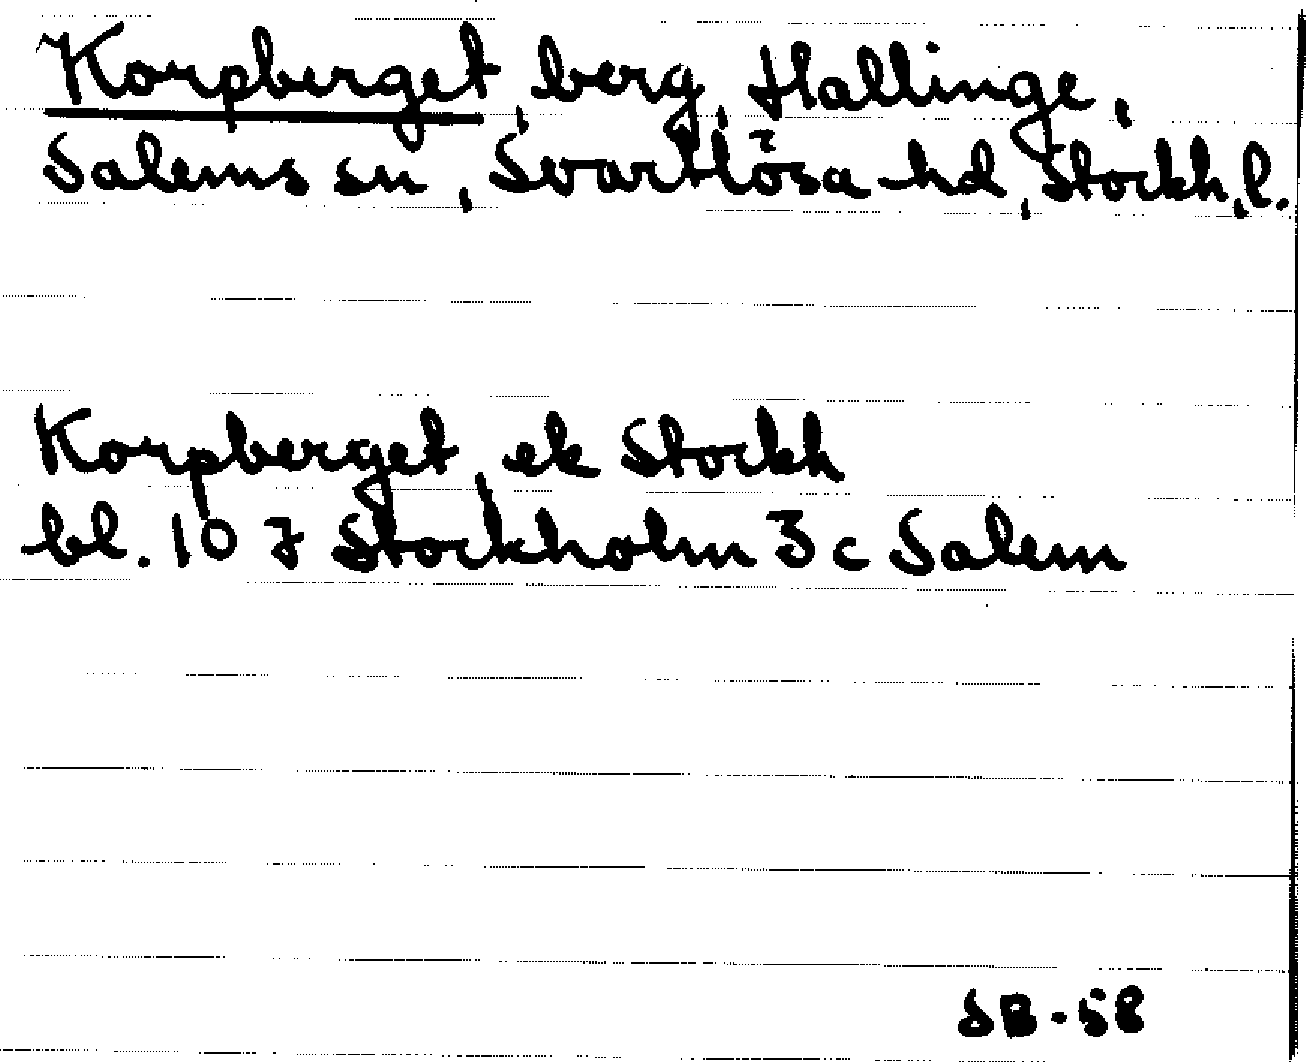 Korpberget, berg, Hallinge,
Salems sn, Svartlösa hd, Stockh, l.
Korpberget, ek Stockh
bl. 10 7 Stockholm 3 c Salem
SB-58